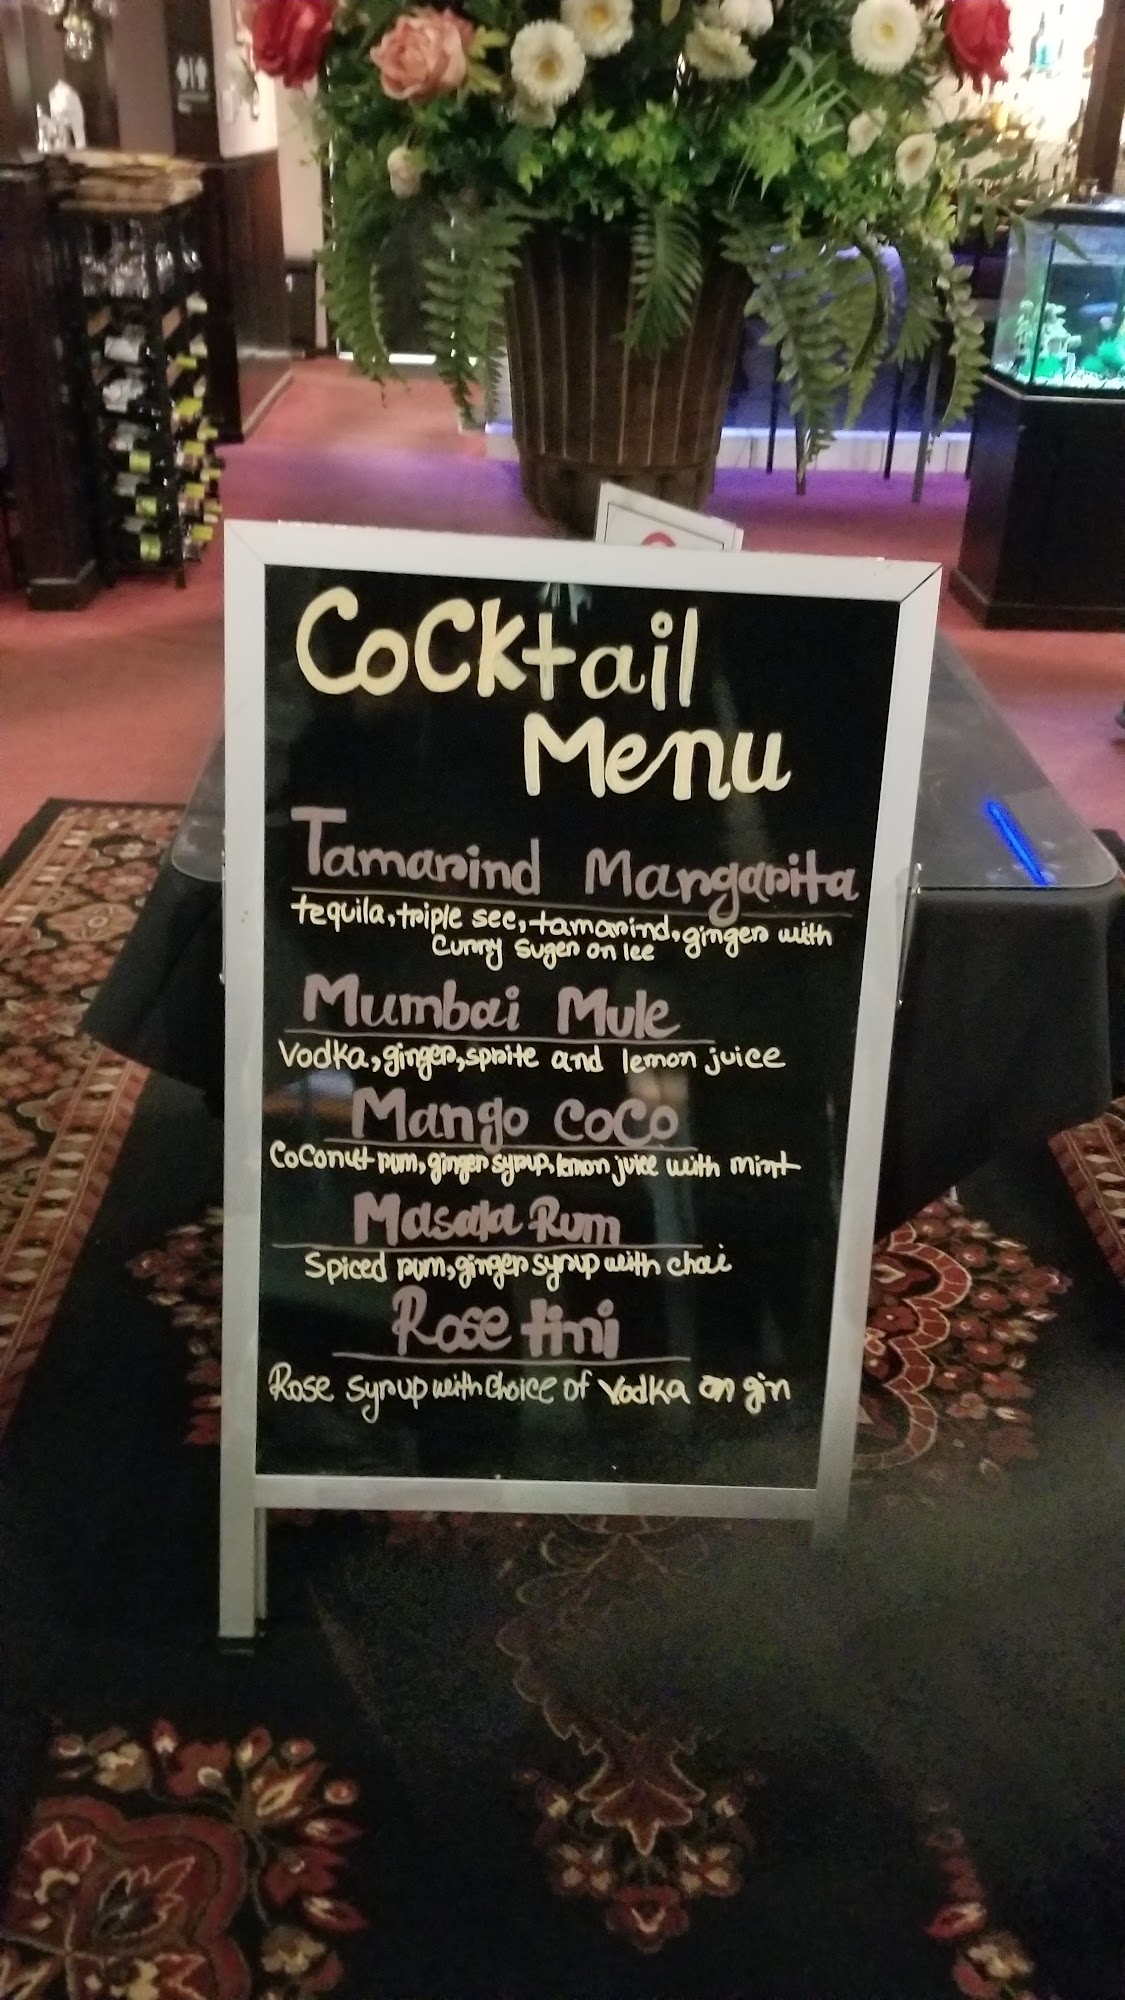 Cocktail
Menu
Tamarind Margarita
tequila, triple sec, tamarind, ginger with
Curry Suger on Ice
Mumbai Mule
Vodka, ginger, sprite and lemon juice
Mango CoCo
Coconut rum, ginger syrup, lemon juice with mint
Masala Rum
Spiced rum, ginger syrup with chai
Rose tini
Rose syrup with Choice of Vodka or gin